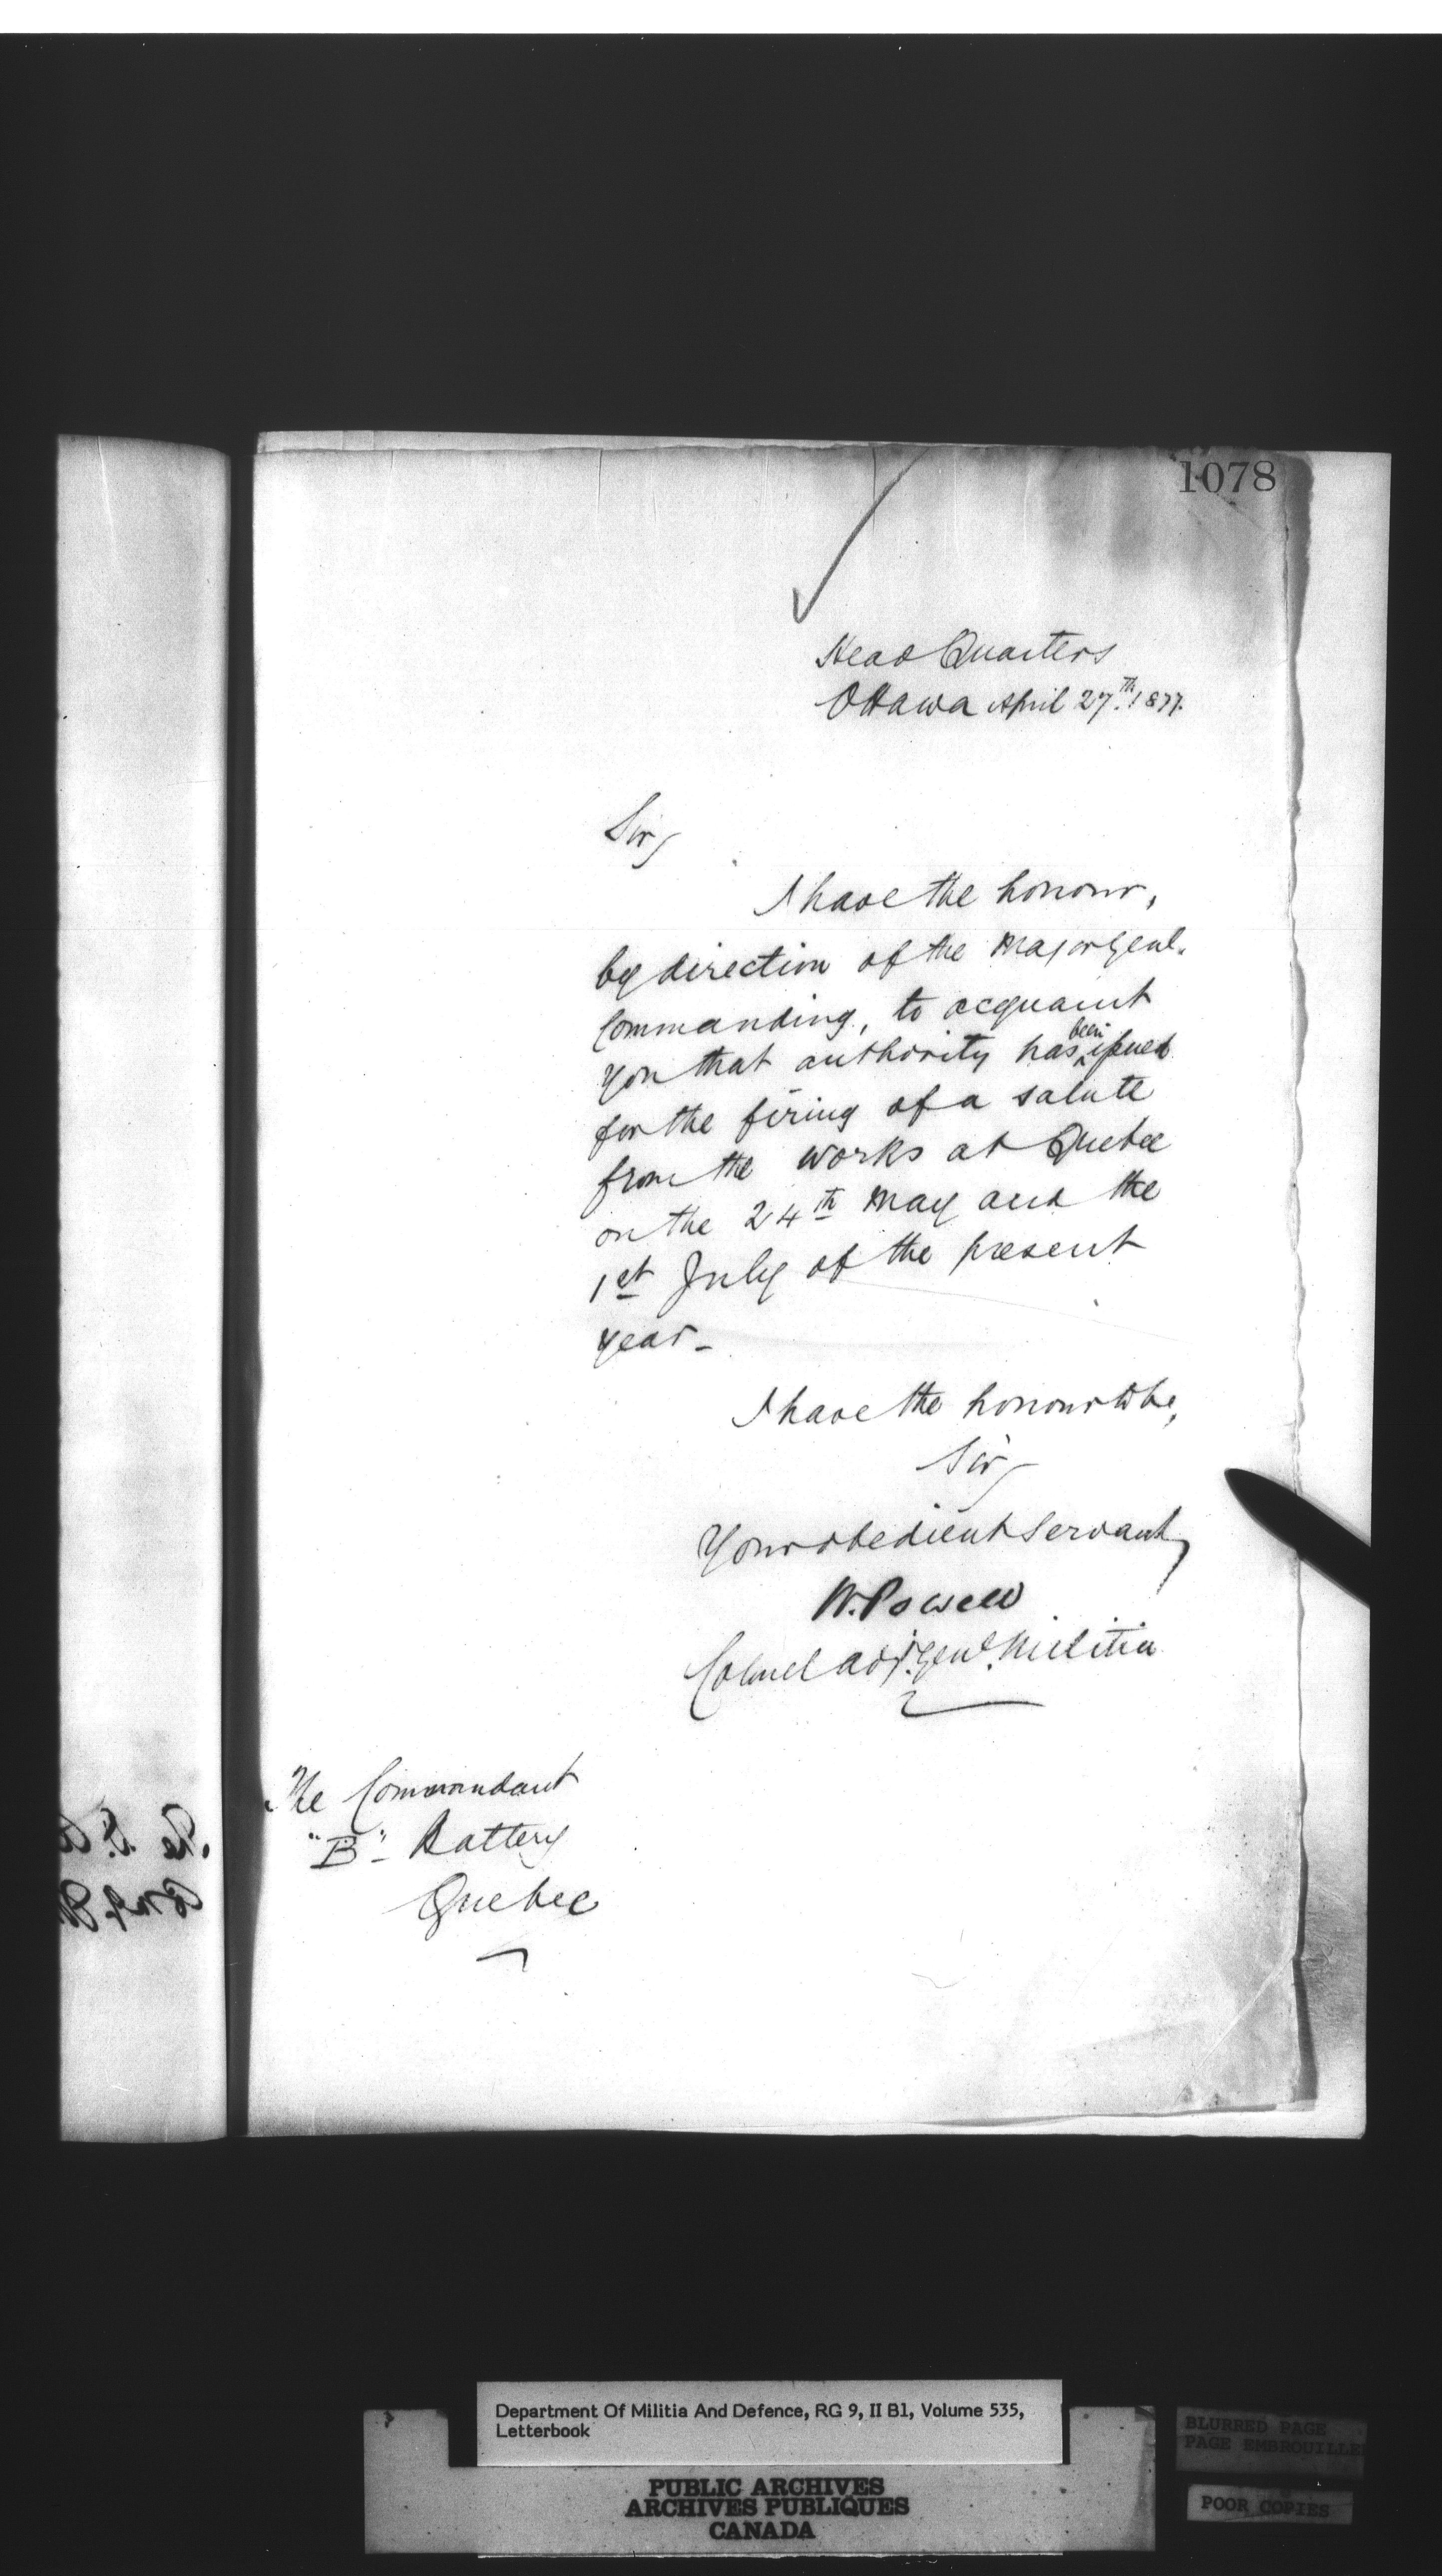 1078
Head Quarters
Ottawa April 27th. 1877.
Sir,
I have the honour,
by direction of the Major Genl.
Commanding, to acquaint
you that authority has been issued
for the firing of a salute
from the works at Quebec
on the 24th May and the
1st July of the present
year_
I have the honour to be,
Sir,
Your obedient Servant,
W. Powell
Colonel Adjt. Genl. Militia
The Commandant
"B" Battery
Quebec
Department Of Militia And Defence, RG 9, II B1, Volume 535,
Letterbook
PUBLIC ARCHIVES
ARCHIVES PUBLIQUES
CANADA
BLURRED PAGE
PAGE EMBROUILLE
POOR COPIES